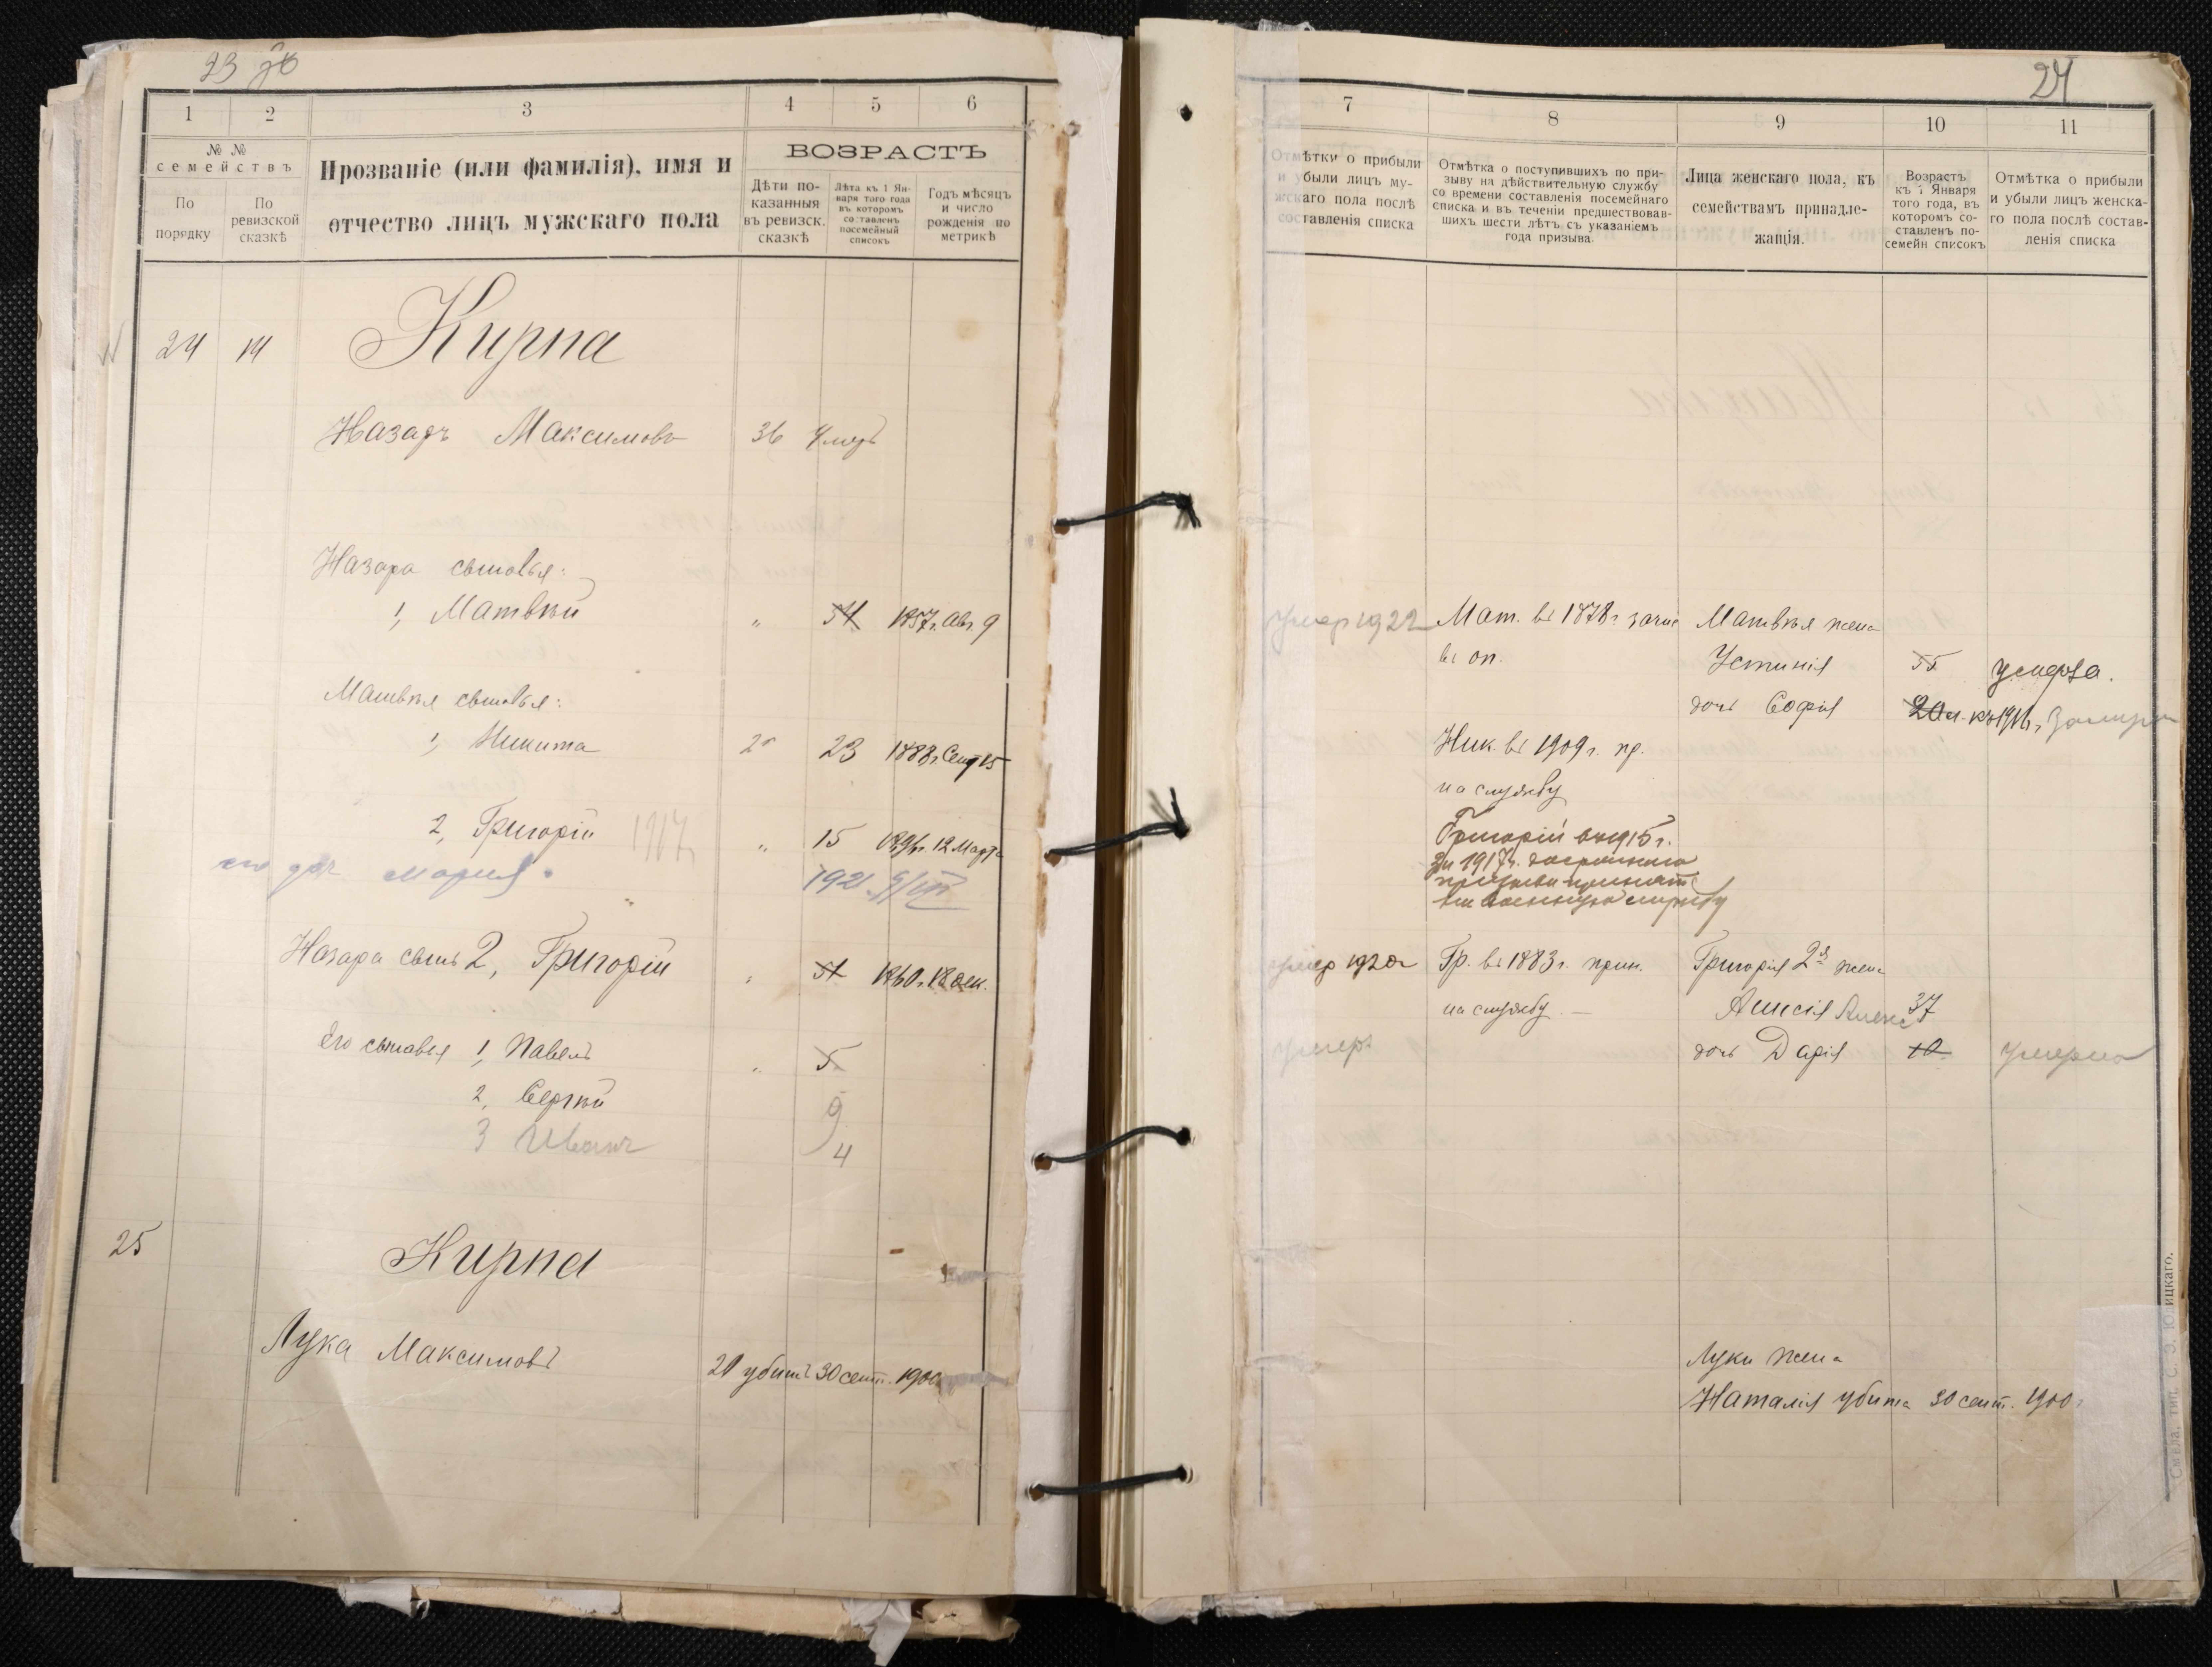 23 об
1
2
3
4
5
6
№ №
семействъ
Прозваніе (или фамилія), имя и
отчество лицъ мужскаго пола
ВОЗРАСТЪ
По
порядку
По
ревизской
сказкѣ
Дѣти по-
казанныя
въ ревизск.
сказкѣ
Лѣта къ 1 Ян-
варя того года
въ которомъ
составленъ
посемейный
списокъ
Годъ мѣсяцъ
и число
рожденія по
метрикѣ
24 14 Кирпа
Назаръ Максимовъ 36 Умеръ
Назара сыновья:
1, Матвѣй " 54 1857 г. Авг. 9
Матвѣя сыновья:
1, Никита 23 1888 г. Сент 15
2, Григорій 1917 " 15 1896 г. 12 Марта
его доч Мария. 1921
Назара сынъ 2, Григорій 51 1860 г. 18
Его сыновья 1, Павелъ " 5
2, Сергѣй 9
3 Иванъ 4
25 Кирпа
Лука Максимовъ 20 убитъ 30 сент. 1900
24
7
8
9
10
11
Отмѣтки о прибыли
и убыли лицъ му-
жскаго пола послѣ
составленія списка
Отмѣтка о поступившихъ по при-
зыву на дѣйствительную службу
со времени составленія посемейнаго
списка и въ теченіи предшествовав-
шихъ шести лѣтъ съ указаніемъ
года призыва.
Лица женскаго пола, къ
семействамъ принадле-
жащія.
Возрастъ
къ 1 Января
того года, въ
которомъ со-
ставленъ по-
семейн списокъ
Отмѣтка о прибыли
и убыли лицъ женска-
го пола послѣ состав-
ленія списка
умер 1922 Мат. въ 1878 г. зачис Матвѣя жена
въ оп. Устинія 55 умерла.
дочь Софія 20
Ник. въ 1909 г. пр.
на службу
Григорій въ 1915 г.
за 1917 г. досрочнаго
призыва принятъ
на военную службу
умер 1920 г Гр. въ 1883 г. прин. Григорія 2й жена
на службу. — Анисія 37
умеръ дочь Дарія 10 умерла
Луки жена
Наталія убита 30 сент. 1900 г.
Смѣла, тип. С. З. Юницкаго.